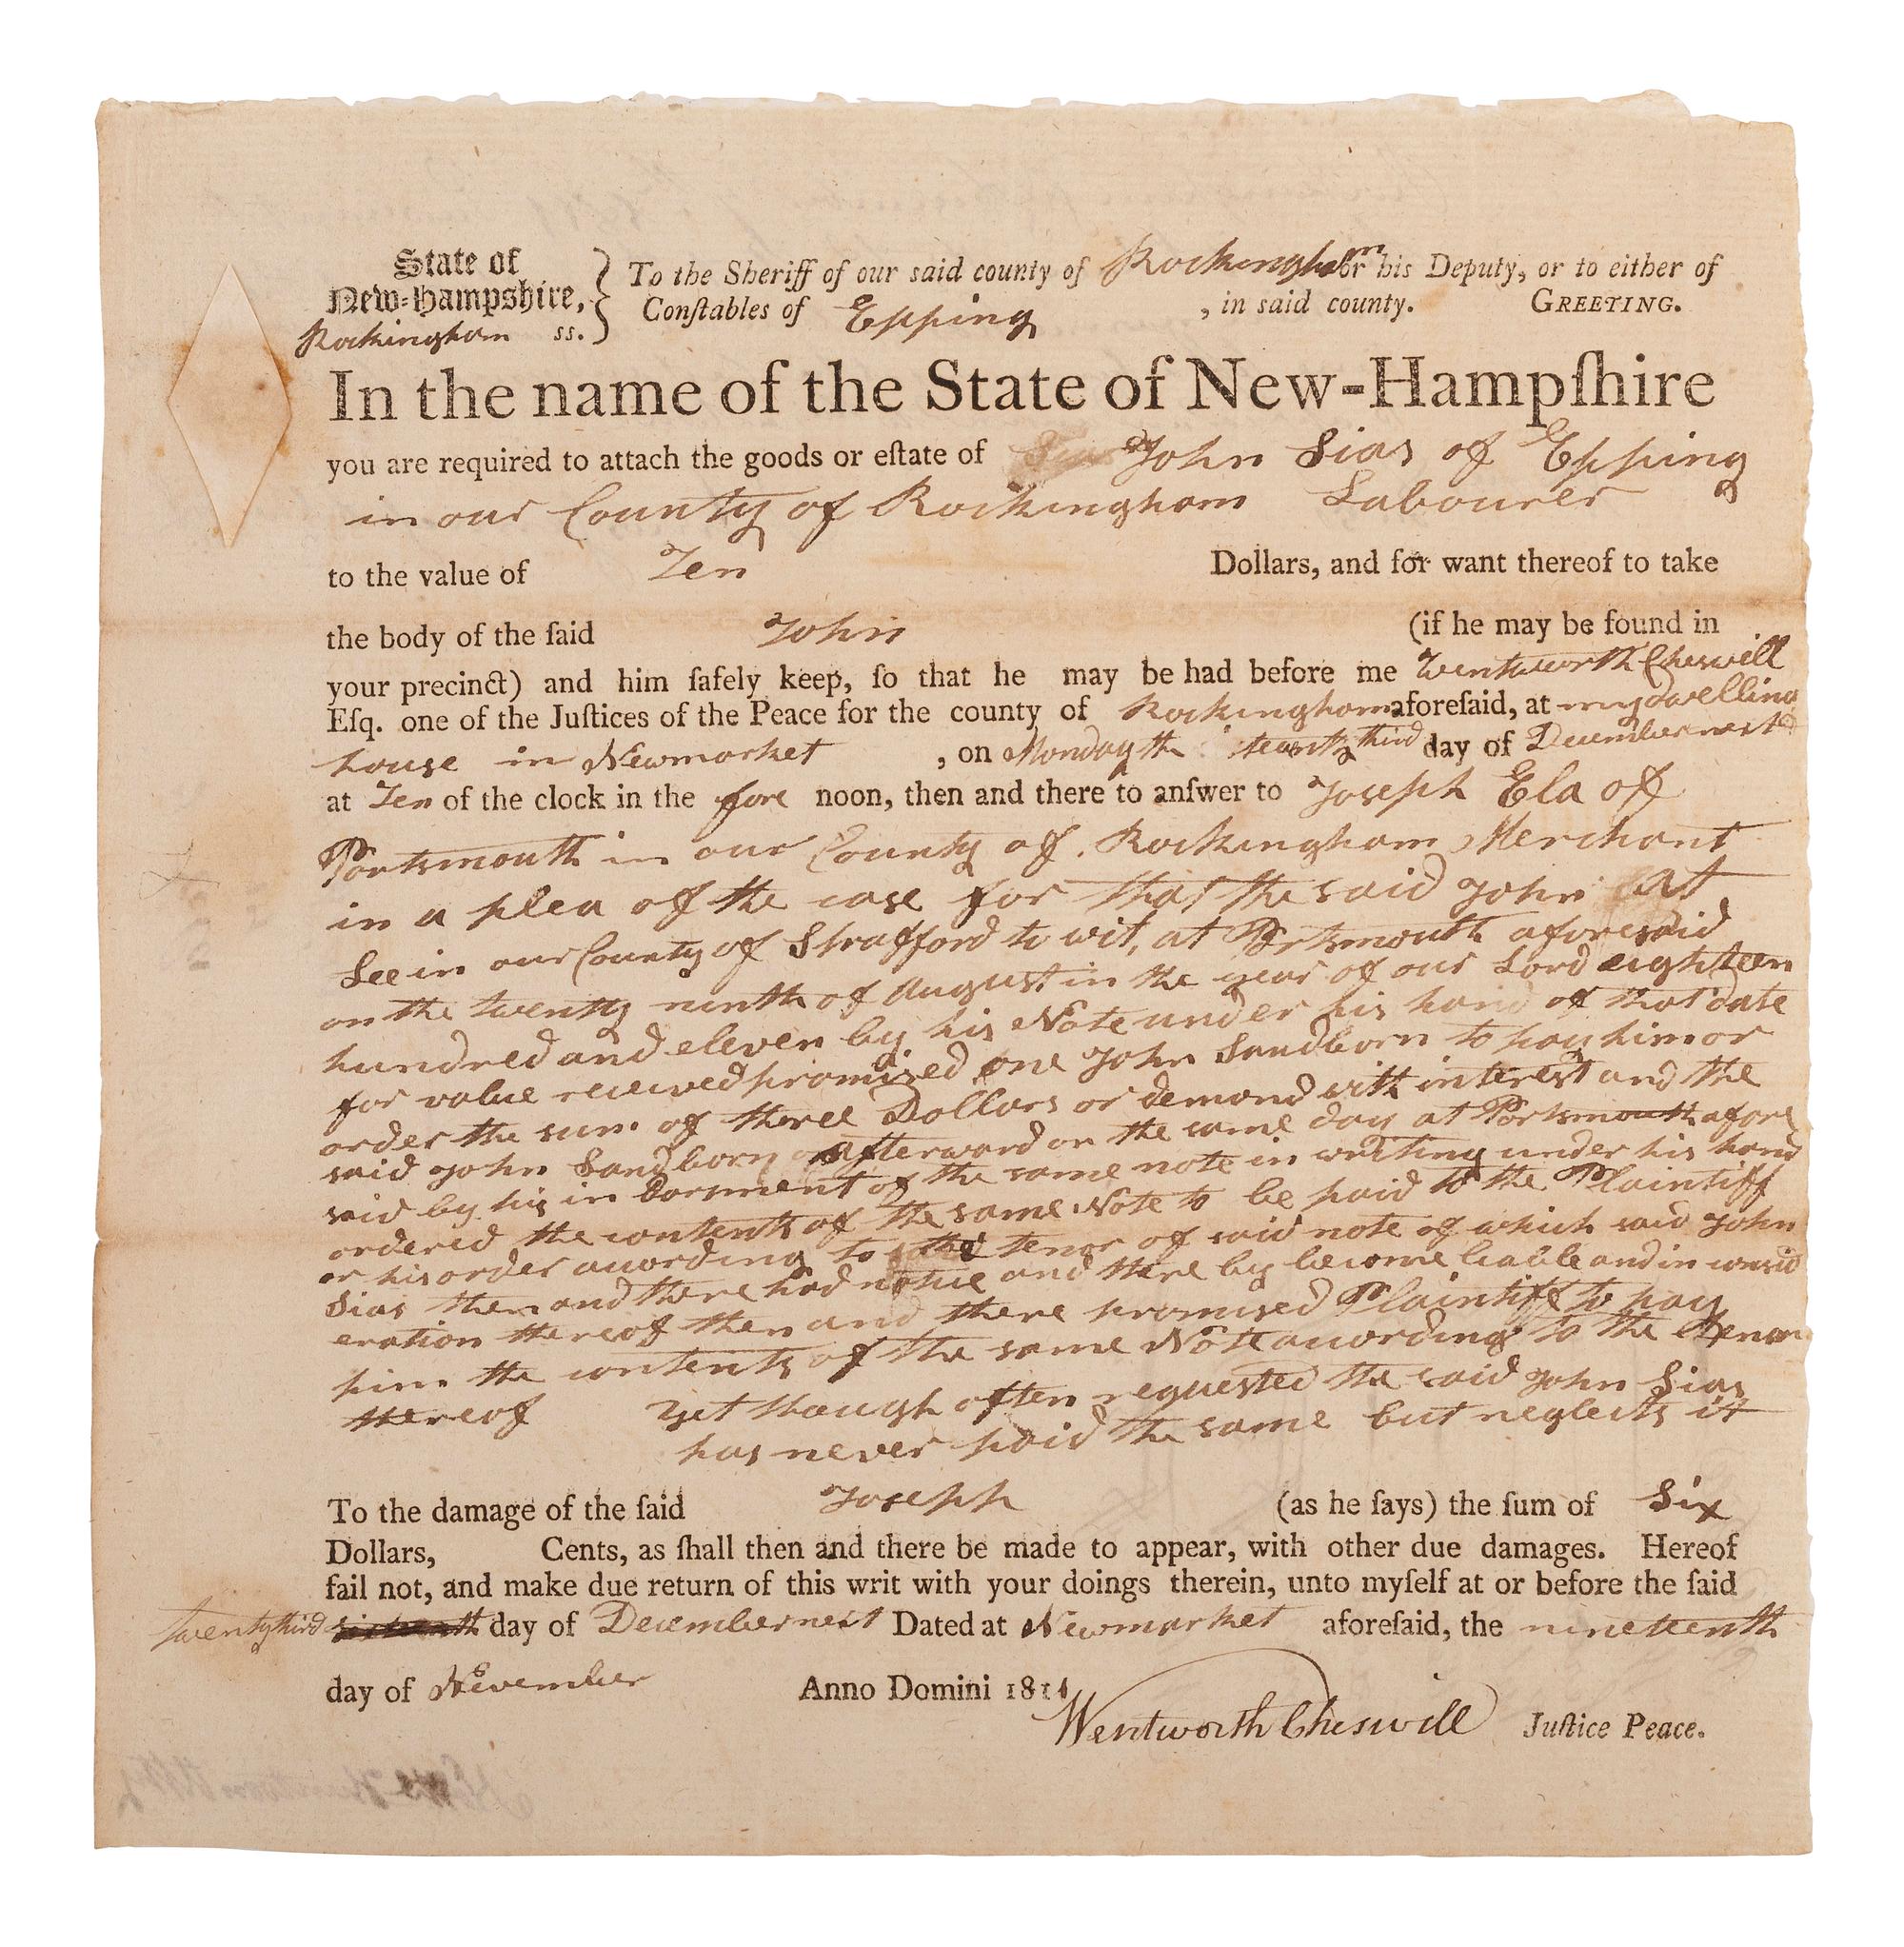 State of
New-Hampshire,
Rockingham ss.
To the Sheriff of our said county of Rockingham or his Deputy, or to either of
Conſtables of Epping , in said county. GREETING.
In the name of the State of New-Hampſhire
you are required to attach the goods or eſtate of John Sias of Epping
in our County of Rockingham Labourer
to the value of Ten Dollars, and for want thereof to take
the body of the ſaid John (if he may be found in
your precinct) and him ſafely keep, ſo that he may be had before me Wentworth Cheswill
Eſq. one of the Juſtices of the Peace for the county of Rockingham aforeſaid, at my Dwelling
house in Newmarket , on Monday the twenty third day of December next
at Ten of the clock in the fore noon, then and there to anſwer to Joseph Ela of
Portsmouth in our County of Rockingham Merchant
in a plea of the case for that the said John At
Lee in our County of Strafford to wit, at Portsmouth aforesaid
on the twenty ninth of August in the year of our Lord eighteen
hundred and eleven by his Note under his hand of that date
for value received promised one John Sandborn to pay him or
order the sum of three Dollars or demand with interest and the
said John Sandborn afterward on the same day at Portsmouth afore
said by his indorsment of the same note in writing under his hand
ordered the contents of the same Note to be paid to the Plaintiff
or his order acording to the tenor of said note of which said John
Sias then and there had notice and there by become liable and in consid
eration thereof then and there promised Plaintiff to pay
him the contents of the same Note acording to the tenor
thereof yet though often requested the said John Sias
has never paid the same but neglects it
To the damage of the ſaid Joseph (as he ſays) the ſum of Six
Dollars, Cents, as ſhall then and there be made to appear, with other due damages. Hereof
fail not, and make due return of this writ with your doings therein, unto myſelf at or before the ſaid
twenty third sixteenth day of December next Dated at Newmarket aforeſaid, the nineteenth
day of November Anno Domini 1811
Wentworth Cheswill Juſtice Peace.